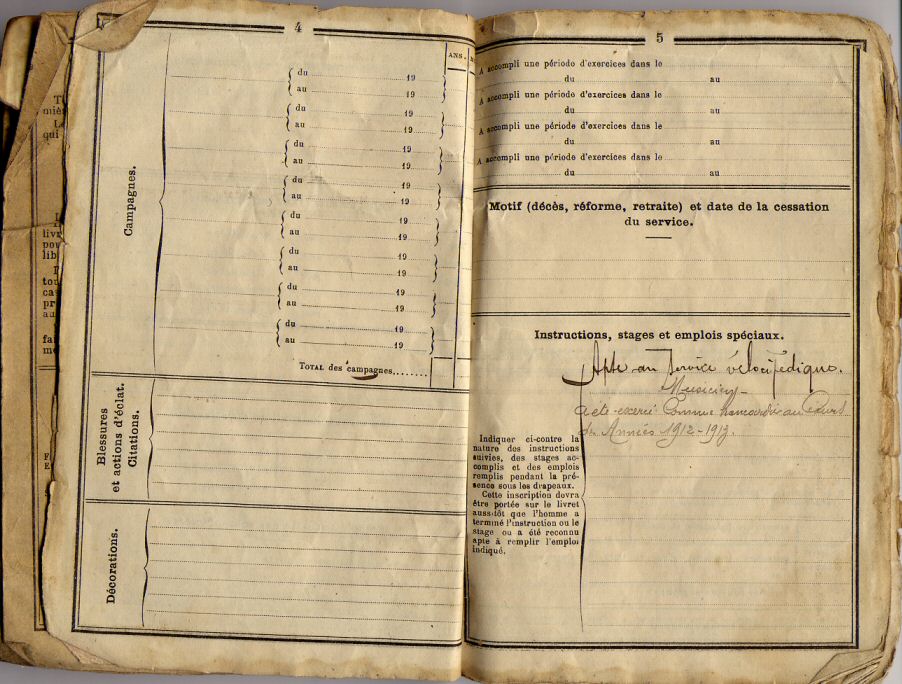 4
ANS.
Campagnes.
du 19
au 19
du 19
au 19
du 19
au 19
du 19
au 19
du 19
au 19
du 19
au 19
du 19
au 19
du 19
au 19
TOTAL des campagnes........
Blessures
et actions d'éclat.
Citations.
Décorations.
5
A accompli une période d'exercices dans le
du au
A accompli une période d'exercices dans le
du au
A accompli une période d'exercices dans le
du au
A accompli une période d'exercices dans le
du au
Motif (décès, réforme, retraite) et date de la cessation
du service.
Instructions, stages et emplois spéciaux.
Apte au Service vélocipédique.
Musicien
a été exercé comme brancardier au Cours
des Années 1912-1913.
Indiquer ci-contre la
nature des instructions
suivies, des stages ac-
complis et des emplois
remplis pendant la pré-
sence sous les drapeaux.
Cette inscription devra
être portée sur le livret
aussitôt que l'homme a
terminé l'instruction ou le
stage ou a été reconnu
apte à remplir l'emploi
indiqué.